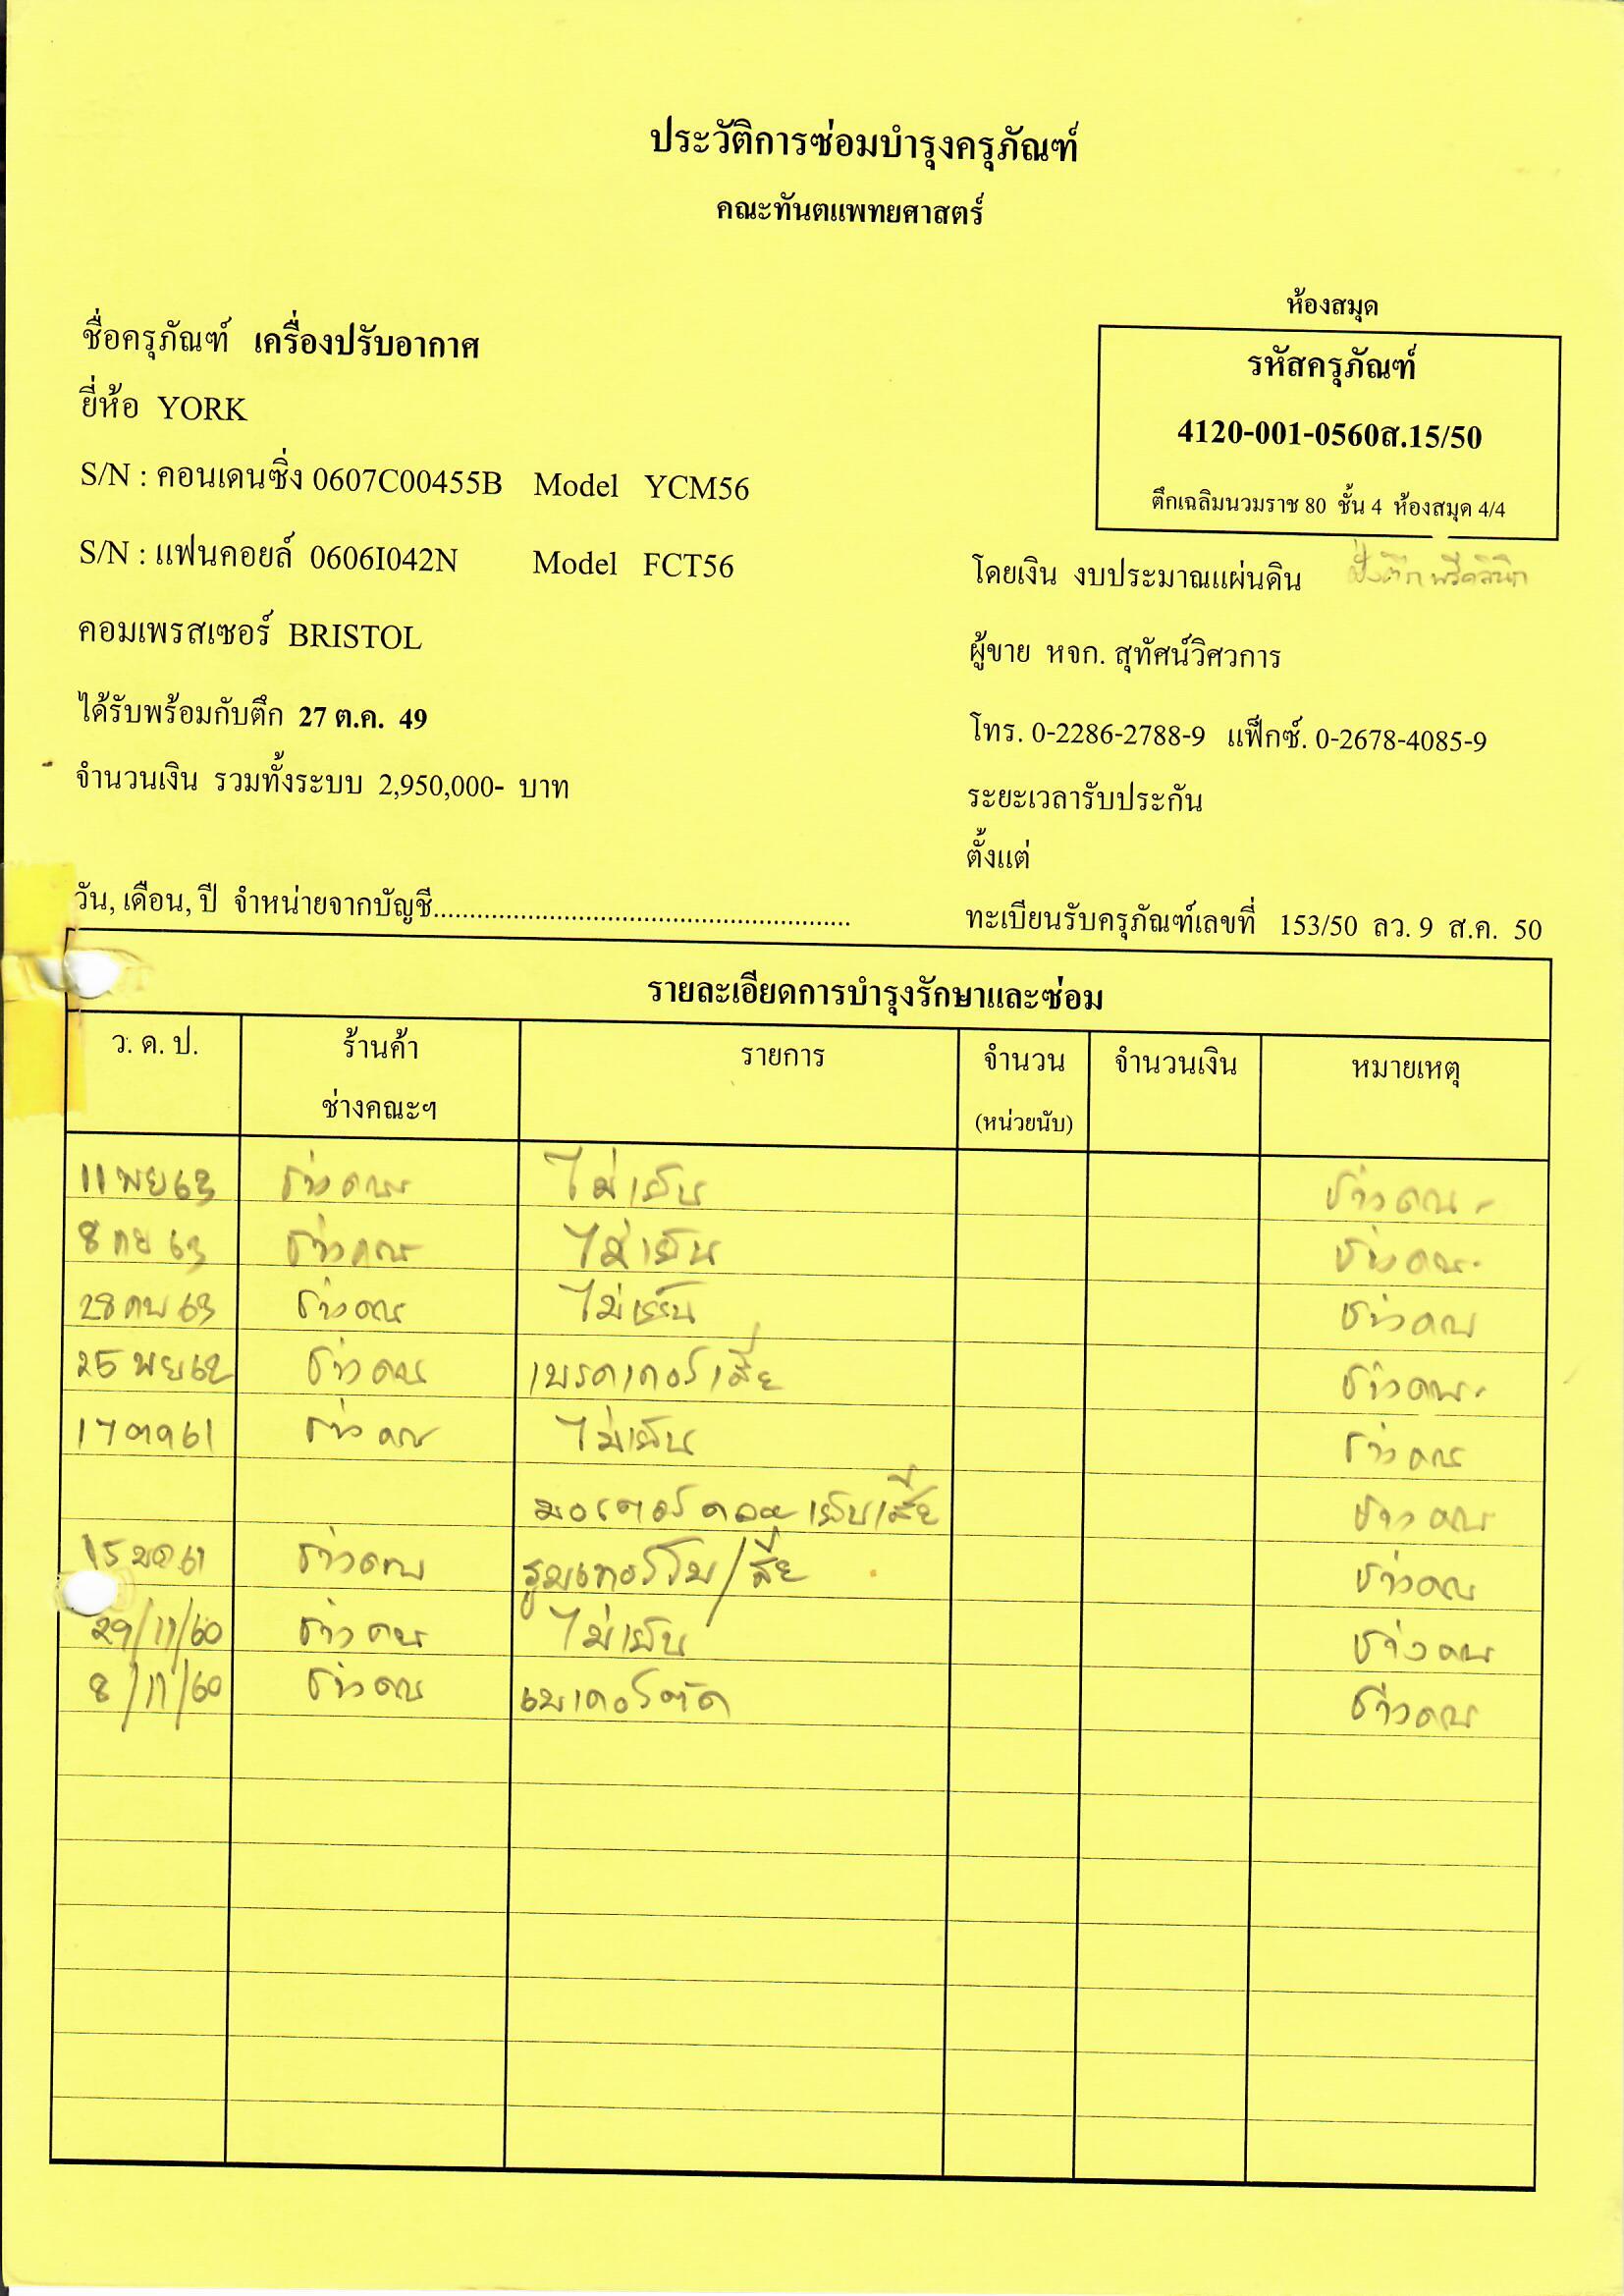 ประวัติการซ่อมบำรุงครุภัณฑ์
คณะทันตแพทยศาสตร์
ห้องสมุด
ชื่อครุภัณฑ์ เครื่องปรับอากาศ
รหัสครุภัณฑ์
ยี่ห้อ YORK
4120-001-0560ส.15/50
S/N : คอนเดนซิ่ง 0607C00455B Model YCM56
ตึกเฉลิมนวมราช 80 ชั้น 4 ห้องสมุด 4/4
S/N : แฟนคอยล์ 0606I042N Model FCT56
โดยเงิน งบประมาณแผ่นดิน ฝั่งตึกพรีคลินิก
คอมเพรสเซอร์ BRISTOL
ผู้ขาย หจก. สุทัศน์วิศวการ
ได้รับพร้อมกับตึก 27 ต.ค. 49
โทร. 0-2286-2788-9 แฟ็กซ์. 0-2678-4085-9
จำนวนเงิน รวมทั้งระบบ 2,950,000- บาท
ระยะเวลารับประกัน
ตั้งแต่
วัน, เดือน, ปี จำหน่ายจากบัญชี..........................................................
ทะเบียนรับครุภัณฑ์เลขที่ 153/50 ลว. 9 ส.ค. 50
รายละเอียดการบำรุงรักษาและซ่อม
ว. ด. ป. ร้านค้า รายการ จำนวน จำนวนเงิน หมายเหตุ
ช่างคณะฯ (หน่วยนับ)
11 พย 63 ช่างคณะ ไม่เย็น ช่างคณะ
8 กย 63 ช่างคณะ ไม่เย็น ช่างคณะ
28 กพ 63 ช่างคณะ ไม่เย็น ช่างคณะ
25 พย 62 ช่างคณะ เบรคเกอร์เสีย ช่างคณะ
17 ตค 61 ช่างคณะ ไม่เย็น ช่างคณะ
มอเตอร์คอยเย็นเสีย ช่างคณะ
15 มค 61 ช่างคณะ รูมเทอร์โมเสีย ช่างคณะ
29/11/60 ช่างคณะ ไม่เย็น ช่างคณะ
8/11/60 ช่างคณะ เบเกอร์ตัด ช่างคณะ